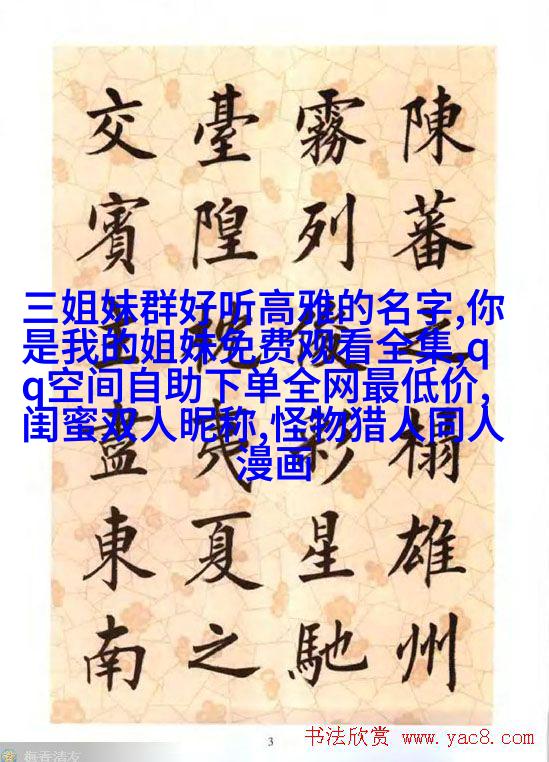 陳蕃之榻雄州
霧列俊彩星馳
臺隍枕夷夏之
交賓主盡東南
三姐妹群好听高雅的名字,你
是我的姐妹免费观看全集,q
q空间自助下单全网最低价,
闺蜜双人昵称,怪物猎人同人
漫画
3
书法欣赏 www.yac8.com